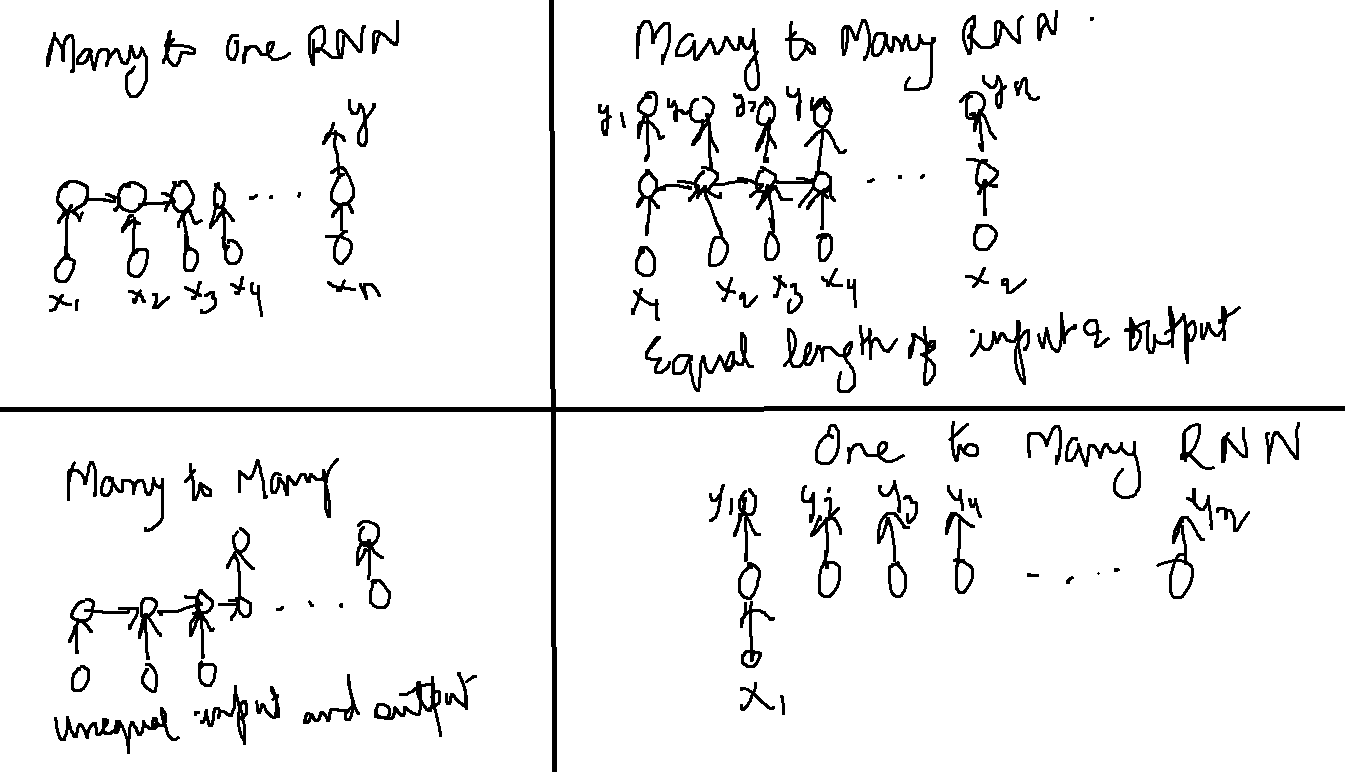 Many to One RNN
y
x1 x2 x3 x4 xn
Many to Many RNN
y1 y3 y4 yn
x1 x2 x3 x4 x2
Equal length of input & output
Many to Many
Unequal input and output
One to Many RNN
y1 y3 y4 yn
x1